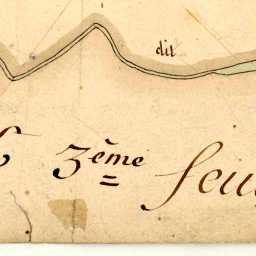 dit
3ème feu